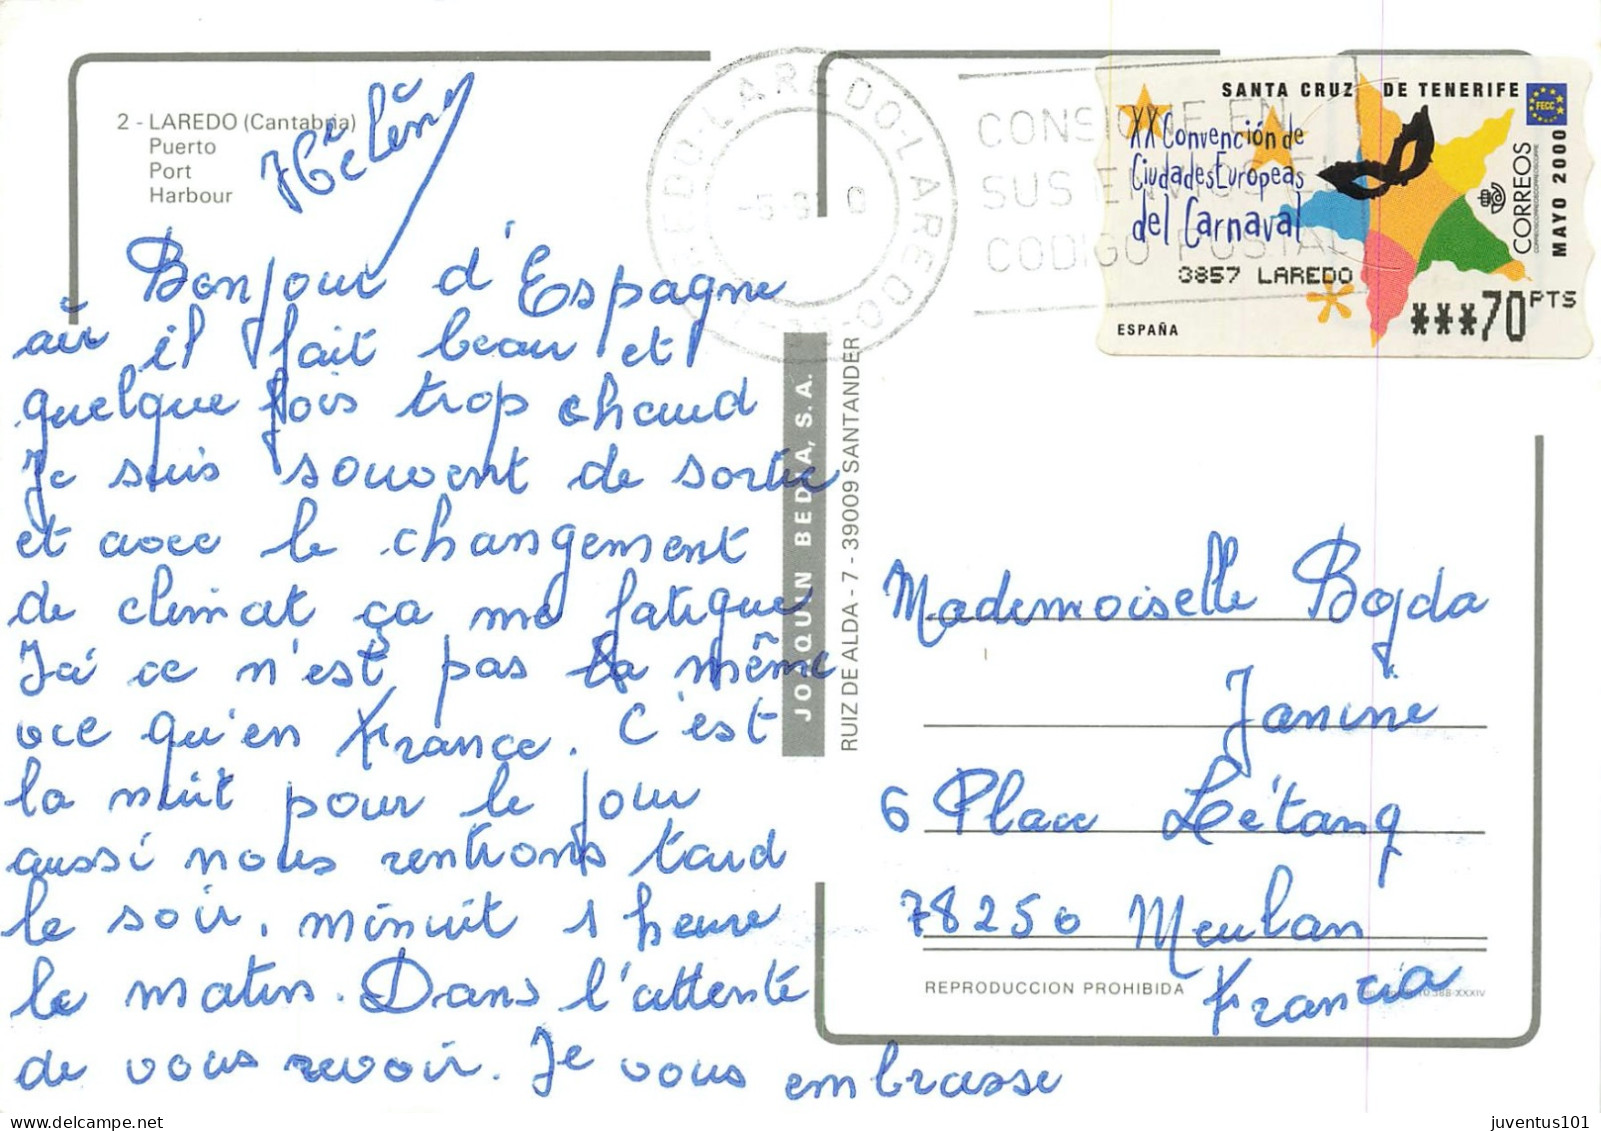 2 - LAREDO (Cantabria)
Puerto
Port
Harbour
Hélène
Bonjour d'Espagne
où il fait beau et
quelque fois trop chaud
Je suis souvent de sortie
et avec le changement
de climat ça me fatigue
Ici ce n'est pas la même
vie qu'en France. C'est
la nuit pour le jour
aussi nous rentrons tard
le soir, minuit 1 heure
le matin. Dans l'attente
de vous revoir. Je vous embrasse
JOAQUIN BEDIA, S. A.
RUIZ DE ALDA - 7 - 39009 SANTANDER
LAREDO-LAREDO-LAREDO-LAREDO
CONSIGNE EN
SUS ENVIOS EL
CODIGO POSTAL
SANTA CRUZ DE TENERIFE
XX Convención de
Ciudades Europeas
del Carnaval
FECC
CORREOS
MAYO 2000
3857 LAREDO
***70 PTS
ESPAÑA
Mademoiselle Bojda
Janine
6 Place Létang
78250 Meulan
Francia
REPRODUCCION PROHIBIDA
juventus101